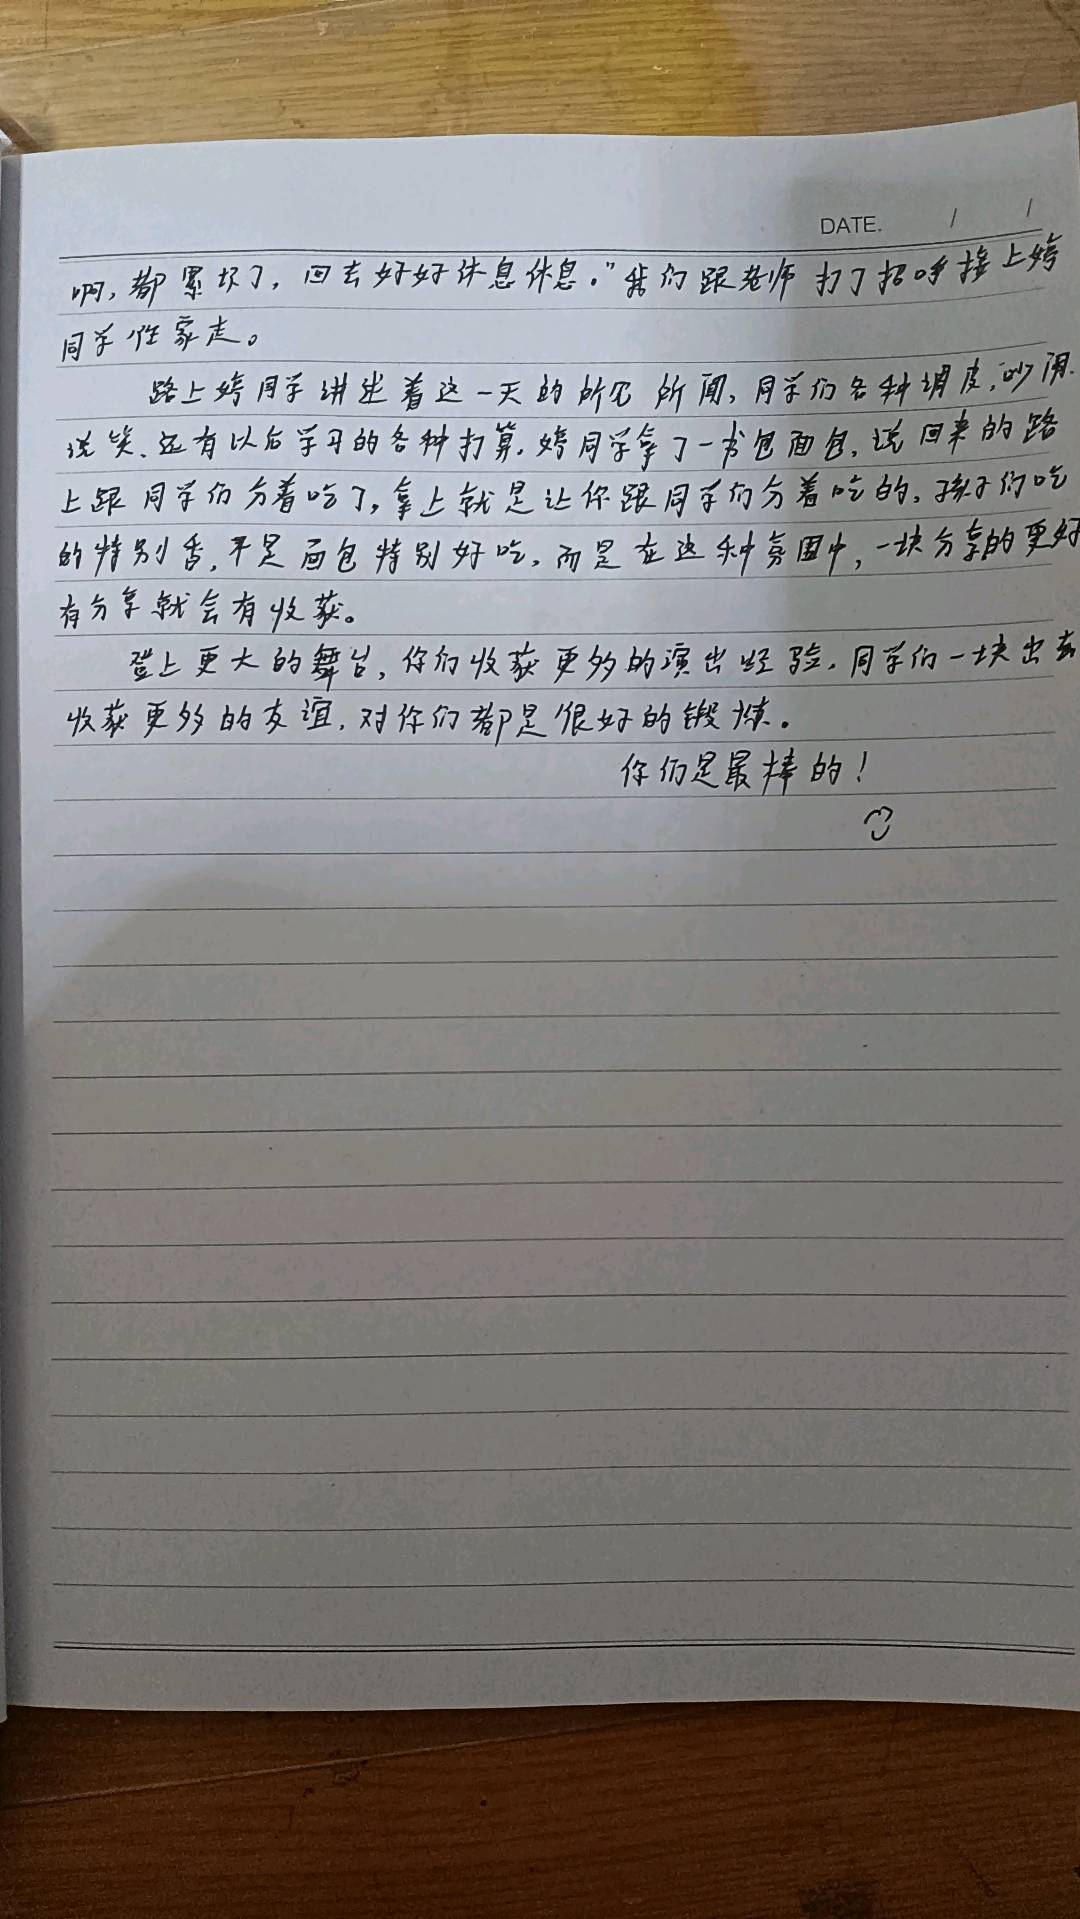 DATE. / /
啊，都累坏了，回去好好休息休息。”我们跟老师打了招呼接上婷
同学往家走。
路上婷同学讲述着这一天的所见所闻，同学们各种调皮，吵闹、
说笑、还有以后学习的各种打算，婷同学拿了一书包面包，说回来的路
上跟同学们分着吃了，拿上就是让你跟同学们分着吃的，孩子们吃
的特别香，不是面包特别好吃，而是在这种氛围中，一块分享的更好
有分享就会有收获。
登上更大的舞台，你们收获更多的演出经验，同学们一块出去
收获更多的友谊，对你们都是很好的锻炼。
你们是最棒的！